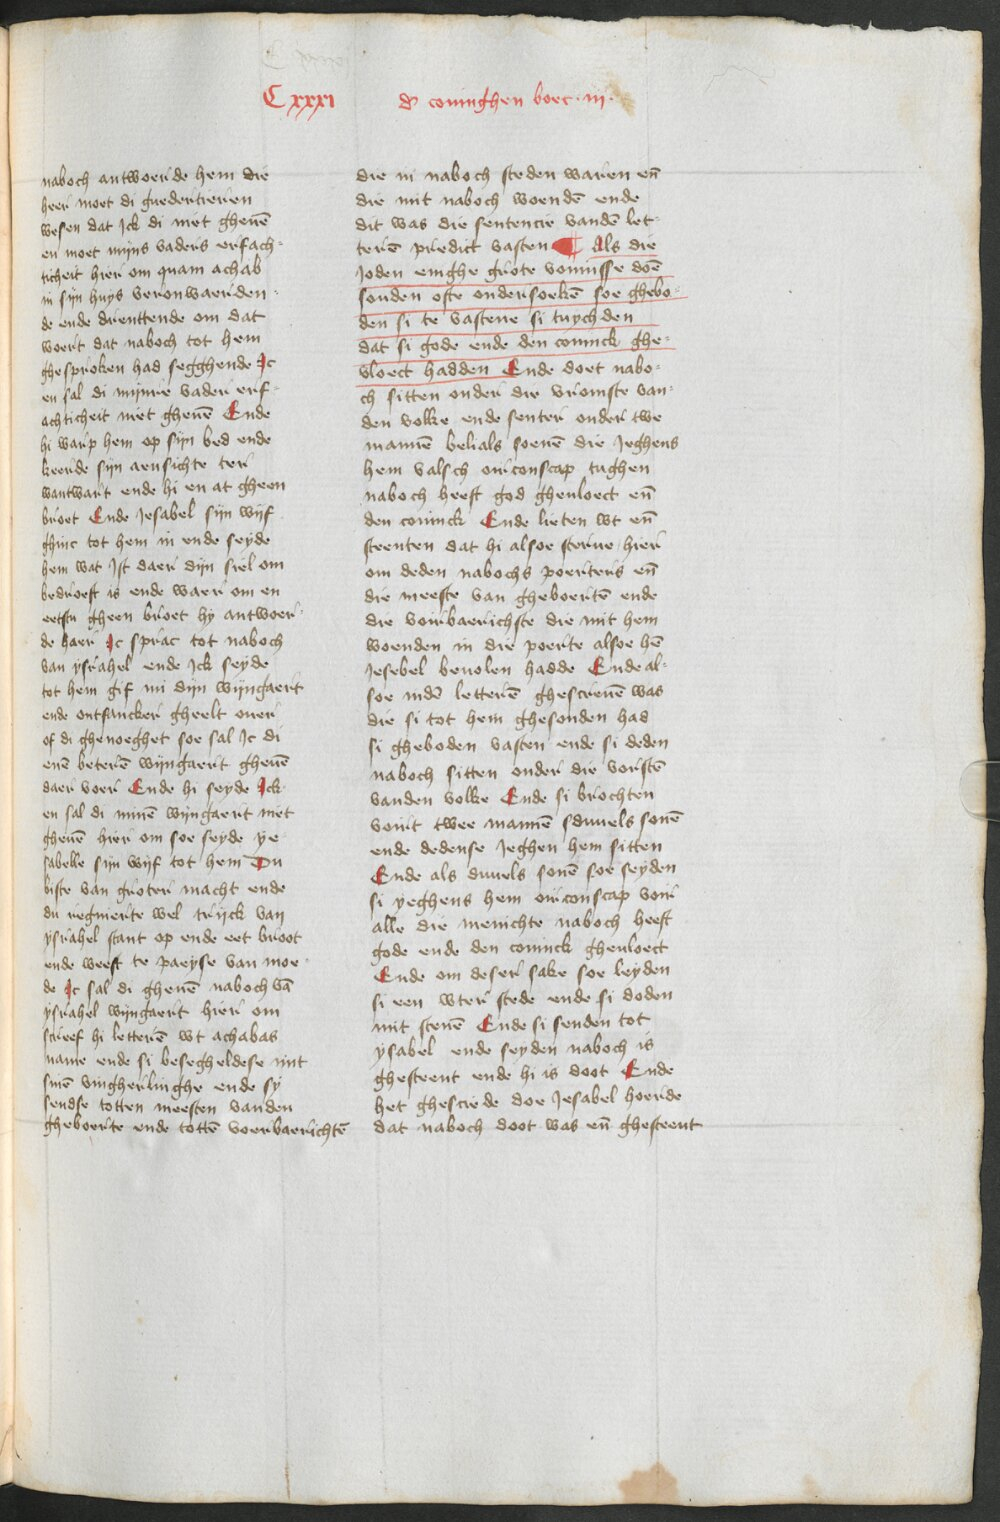 Cxxxi
d' coninghen boec · iij ·
naboch antwoerde hem die
heer moet di guedertieren
wesen dat Ick di niet gheuē
en moet mijns vaders erfach⸗
ticheit hier om quam achab
in sijn huys veronwaerden⸗
de ende drenttende om dat
woert dat naboch tot hem
ghesproken had segghende Ic
en sal di mijnre vader erf⸗
achticheit niet gheuē Ende
hi warp hem op sijn bed ende
keerde sijn aensichte ter
wantwart ende hi en at gheen
broet Ende Jesabel sijn wijf
ghinc tot hem in ende seyde
hem wat Ist daer dijn siel om
bedroeft is ende waer om en
eetstu gheen broet hy antwoer⸗
de haer Ic sprac tot naboch
van ysrahel ende Ick seyde
tot hem gif mi dijn wijngaert
ende ontfancker gheelt ouer
of di ghenoeghet soe sal Ic di
enē beterē wijngaert gheuē
daer voer Ende hi seyde Ick
en sal di minē wijngaert niet
gheuē hier om soe seyde ye⸗
sabelle sijn wijf tot hem Du
biste van groter macht ende
du regnierte wel trijck van
ysrahel stant op ende eet broot
ende weest te paeyse van moe⸗
de Ic sal di gheuē naboch vā
ysrahel wijngaert hier om
screef hi letterē wt achabas
name ende si besegheldese mit
sinē vingherlinghe ende sy
sendse totten meesten vanden
gheboerte ende tottē voerbaerichtē
die in naboch steden waren eñ
die mit naboch woendē ende
dit was die sentencie vandē let⸗
terē predict vasten ¶ Als die
Joden enighe grote vonnisse doē
souden ofte ondersoekē soe ghebo⸗
den si te vastene si tuychden
dat si gode ende den coninck ghe⸗
vloect hadden Ende doet nabo⸗
ch sitten onder die vromste van⸗
den volke ende senter onder twe
mannē belials soenē die Jeghens
hem valsch oirconscap tughen
naboch heeft god gheuloect eñ
den coninck Ende lieten wt eñ
steenten dat hi alsoe sterue hier
om deden nabochs poerters eñ
die meeste van gheboertē ende
die voirbaerichste die mit hem
woenden in die poerte alsoe hē
Jesebel beuolen hadde Ende al⸗
soe indē letterē ghescreuē was
die si tot hem ghesonden had
si gheboden vasten ende si deden
naboch sitten onder die vorstē
vanden volke Ende si brochten
voirt twee mannē sduuels sonē
ende dedense Jeghen hem sitten
Ende als duuels sonē soe seyden
si yeghens hem oirconscap voir
alle die menichte naboch heeft
gode ende den coninck gheuloect
Ende om deser sake soe leyden
si een wter stede ende si doden
mit stenē Ende si senden tot
ysabel ende seyden naboch is
ghesteent ende hi is doot Ende
het ghesciede doe Jesabel hoerde
dat naboch doot was eñ ghesteent